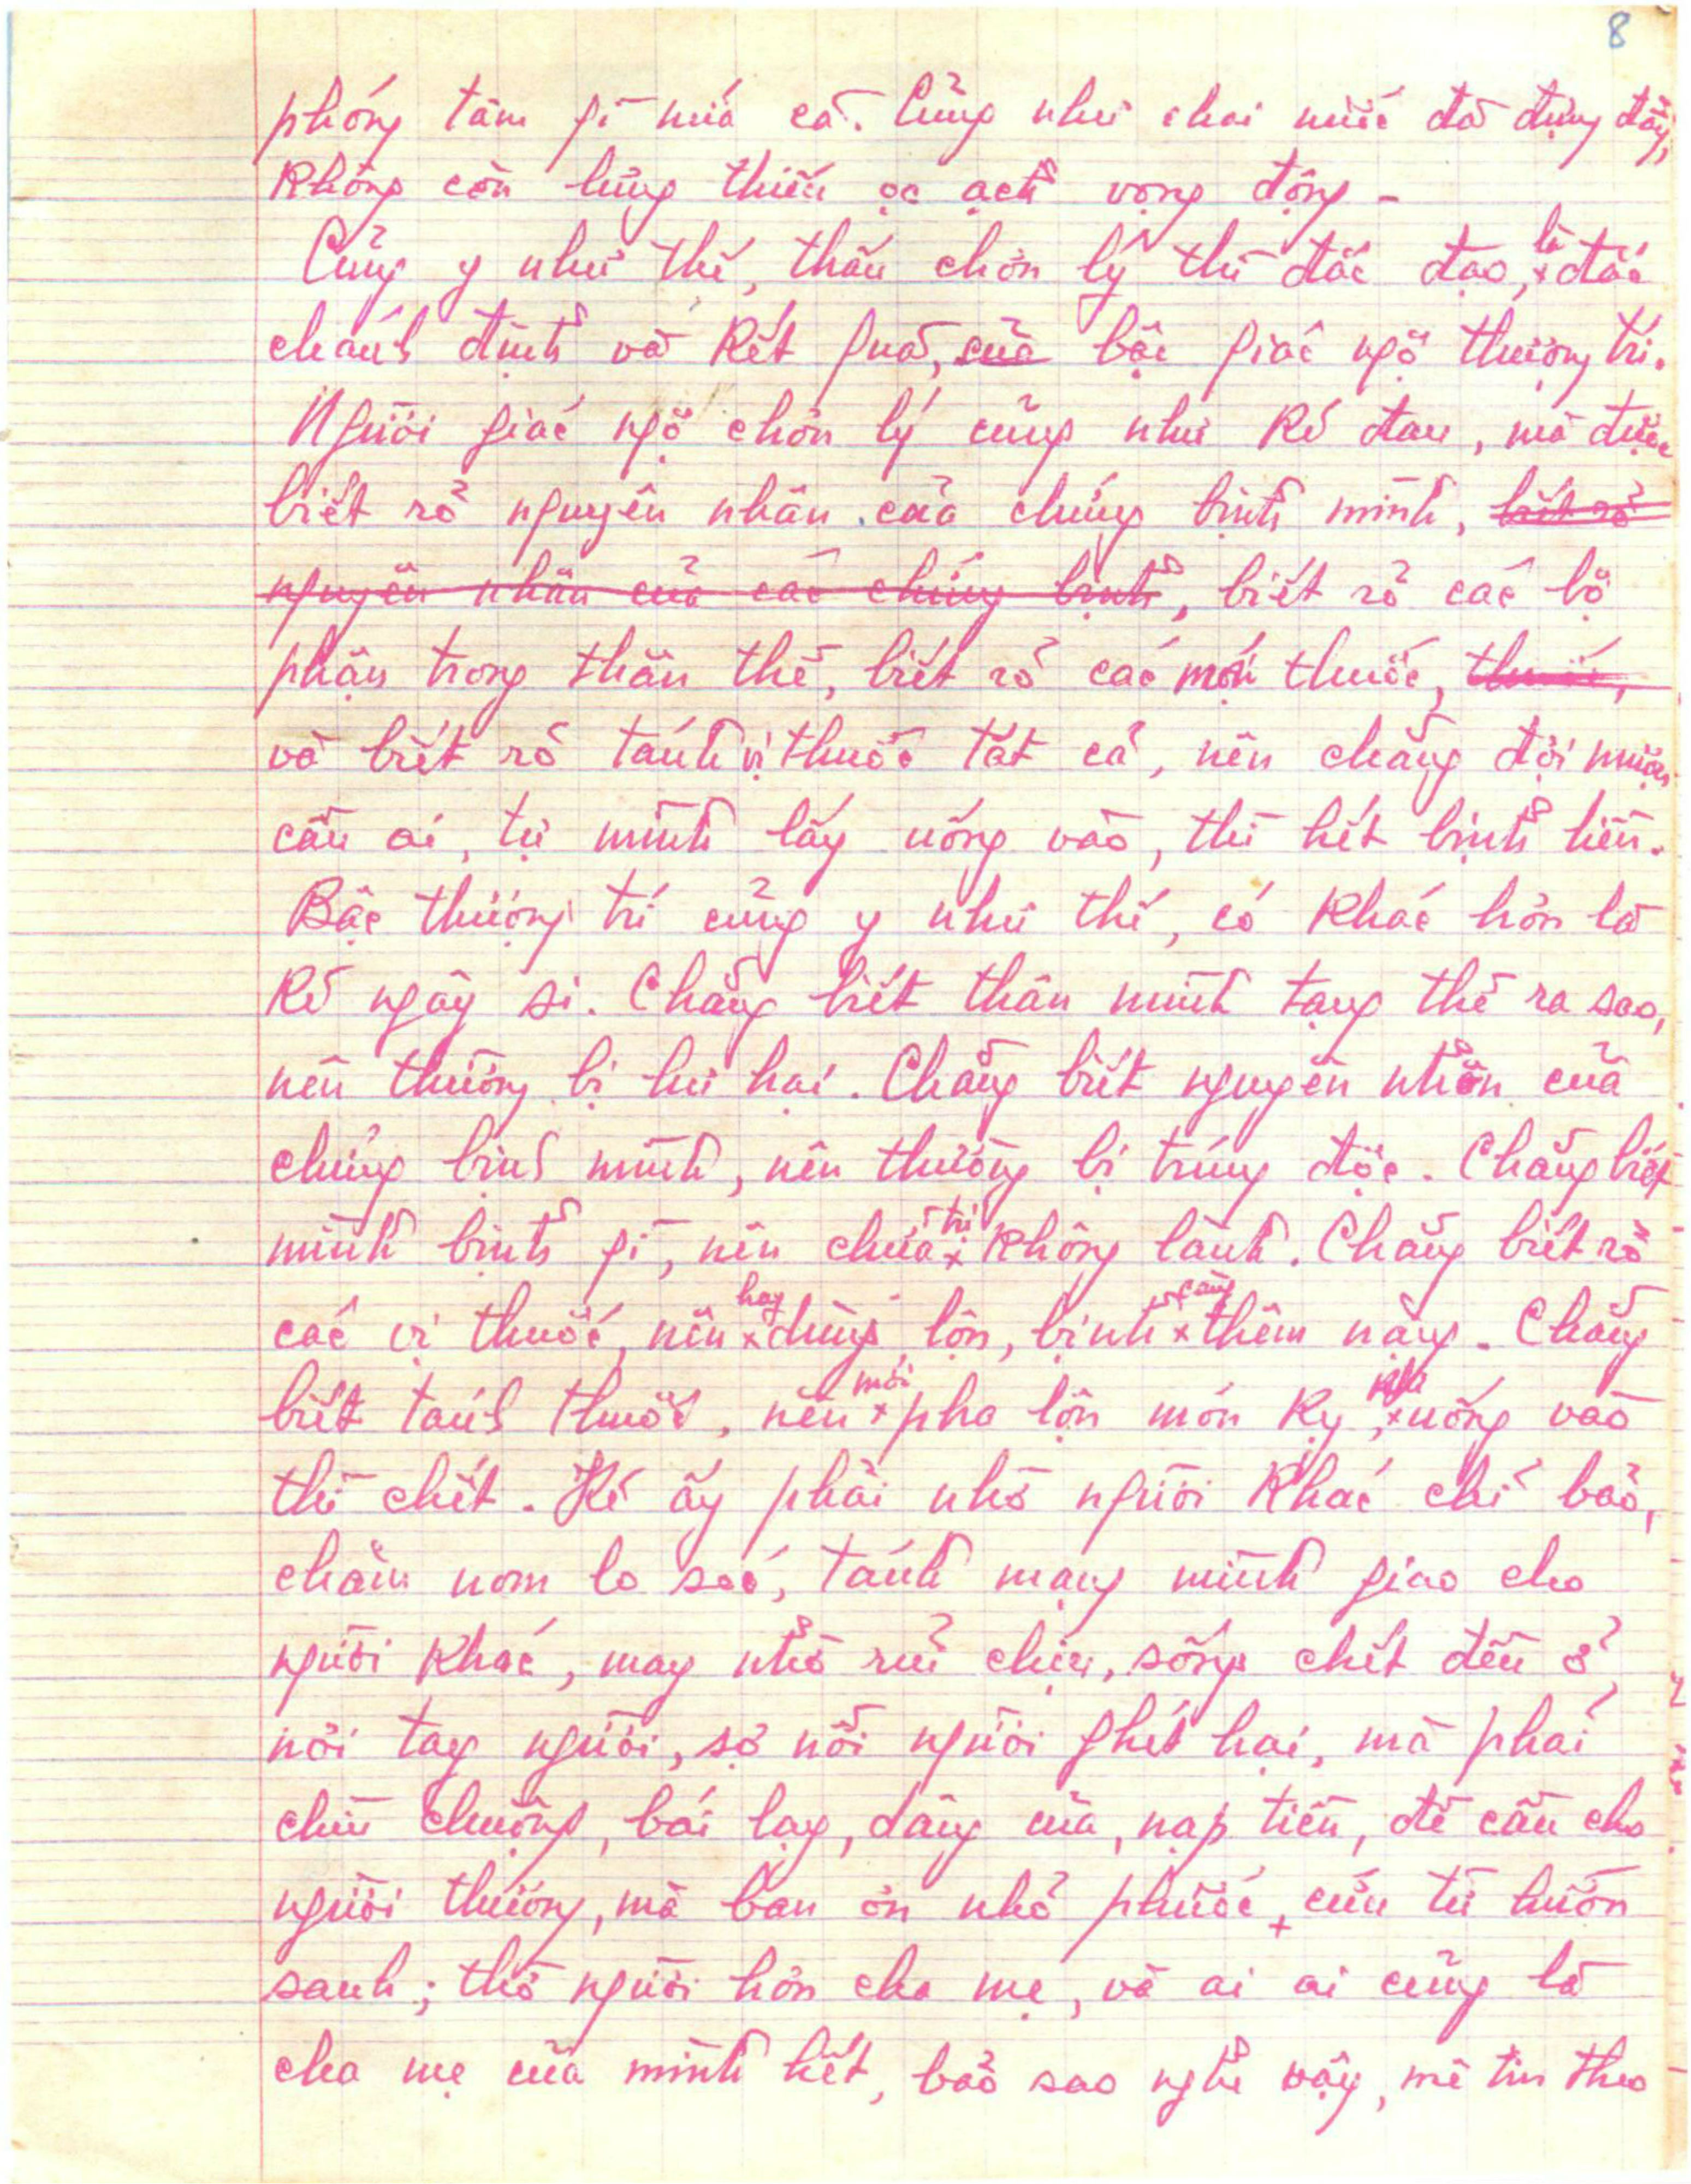 8
phóng tâm gì nửa cả. Cũng như chai nước đã đựng đầy,
không còn lửng thiếu ọc ạch vọng động -
Cũng y như thế, thấu chơn lý thì đắc đạo, là đắc
chánh định và kết quả, của bậc giác ngộ thượng trí.
Người giác ngộ chơn lý cũng như kẻ đau, mà được
biết rỏ nguyên nhân của chứng bịnh mình, biết rỏ
nguyên nhân của các chứng bịnh, biết rỏ các bộ
phận trong thân thể, biết rỏ các món thuốc, thuốc,
và biết rỏ tánh vị thuốc tất cả, nên chẳng đợi mượn
cầu ai, tự mình lấy uống vào, thì hết bịnh liền.
Bậc thượng trí cũng y như thế, có khác hơn là
kẻ ngây si. Chẳng biết thân mình tạng thể ra sao,
nên thường bị hư hại. Chẳng biết nguyên nhơn của
chứng bịnh mình, nên thường bị trúng độc. Chẳng biết
mình bịnh gì, nên chữa trị không lành. Chẳng biết rỏ
các vị thuốc, nên hay dùng lộn, bịnh càng thêm nặng. Chẳng
biết tánh thuốc, nên mới pha lộn món kỵ, uống vào
thì chết. Kẻ ấy phải nhờ người khác chỉ bảo,
chăm nom lo sóc, tánh mạng mình giao cho
người khác, may nhờ rủi chịu, sống chết đều ở
nơi tay người, sợ nỗi người ghét hại, mà phải
chìu chuộng, bái lạy, dâng của, nạp tiền, để cầu cho
người thương, mà ban ơn nhỏ phước, cứu tử huờn
sanh; thờ người hơn cha mẹ, và ai ai cũng là
cha mẹ của mình hết, bảo sao nghe vậy, mê tin theo